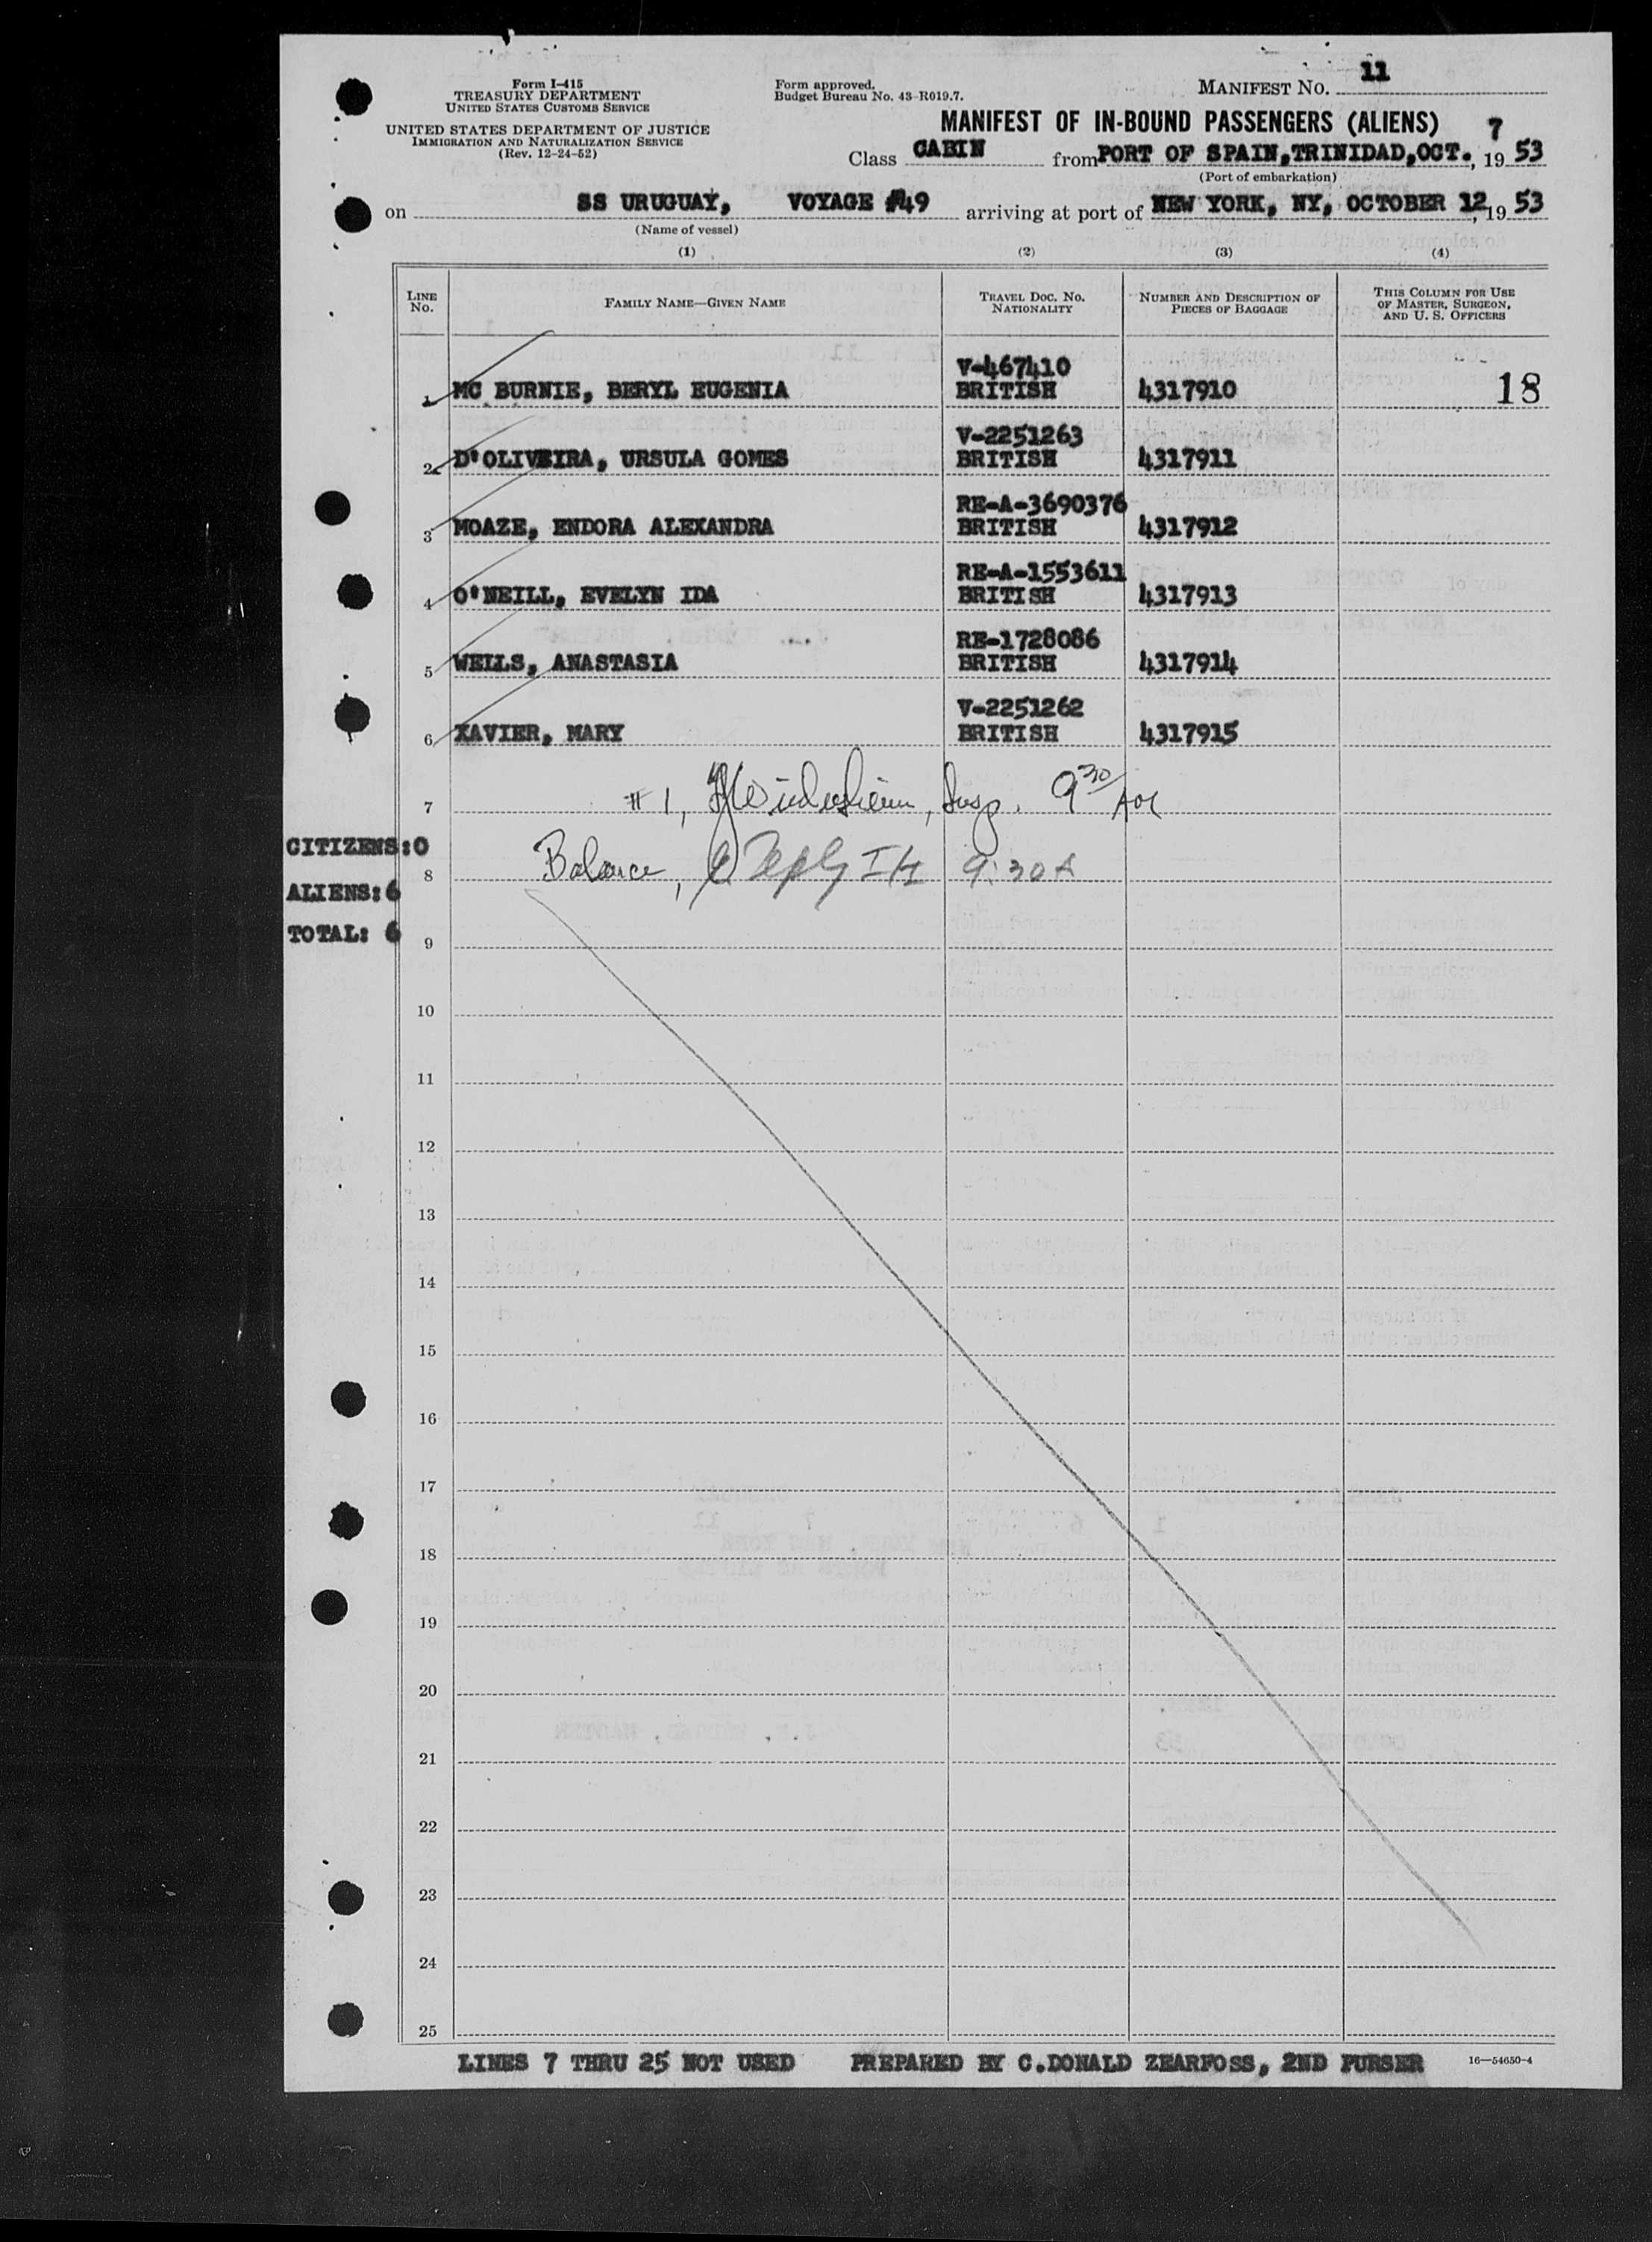 Form I-415
TREASURY DEPARTMENT
UNITED STATES CUSTOMS SERVICE
UNITED STATES DEPARTMENT OF JUSTICE
IMMIGRATION AND NATURALIZATION SERVICE
(Rev. 12-24-52)
Form approved.
Budget Bureau No. 43-R019.7.
MANIFEST NO. 11
MANIFEST OF IN-BOUND PASSENGERS (ALIENS)
Class CABIN from PORT OF SPAIN, TRINIDAD, OCT. 7, 19 53
(Port of embarkation)
on SS URUGUAY, VOYAGE #49 arriving at port of NEW YORK, NY, OCTOBER 12, 19 53
(Name of vessel)
(1) (2) (3) (4)
LINE NO. FAMILY NAME—GIVEN NAME TRAVEL DOC. NO. NATIONALITY NUMBER AND DESCRIPTION OF PIECES OF BAGGAGE THIS COLUMN FOR USE OF MASTER, SURGEON, AND U. S. OFFICERS
V-467410
1 MC BURNIE, BERYL EUGENIA BRITISH 4317910 18
V-2251263
2 D'OLIVEIRA, URSULA GOMES BRITISH 4317911
RE-A-3690376
3 MOAZE, ENDORA ALEXANDRA BRITISH 4317912
RE-A-1553611
4 O'NEILL, EVELYN IDA BRITISH 4317913
RE-1728086
5 WELLS, ANASTASIA BRITISH 4317914
V-2251262
6 XAVIER, MARY BRITISH 4317915
7 #1, Insp. 9 30
CITIZENS: 0
8 Balance, 9:30 A
ALIENS: 6
TOTAL: 6
9
10
11
12
13
14
15
16
17
18
19
20
21
22
23
24
25
LINES 7 THRU 25 NOT USED PREPARED BY C.DONALD ZEARFOSS, 2ND PURSER 16—54650-4